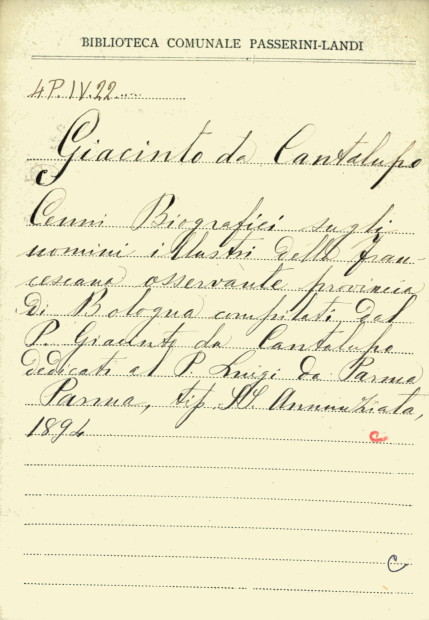 BIBLIOTECA COMUNALE PASSERINI-LANDI
4P.IV.22
Giacinto da Cantalupo
Cenni Biografici sugli
uomini illustri della fran-
cescana osservante provincia
di Bologna compilati dal
P. Giacinto da Cantalupo
dedicati al P. Luigi da Parma
Parma, tip. SS. Annunziata,
1894
C
C